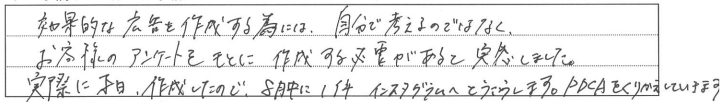 効果的な広告を作成する為には、自分で考えるのではなく、
お客様のアンケートをもとに作成する必要があると実感しました。
実際に本日、作成したので、8月中に1件 インスタグラムへとうこうします。PDCAをくりかえしていきます